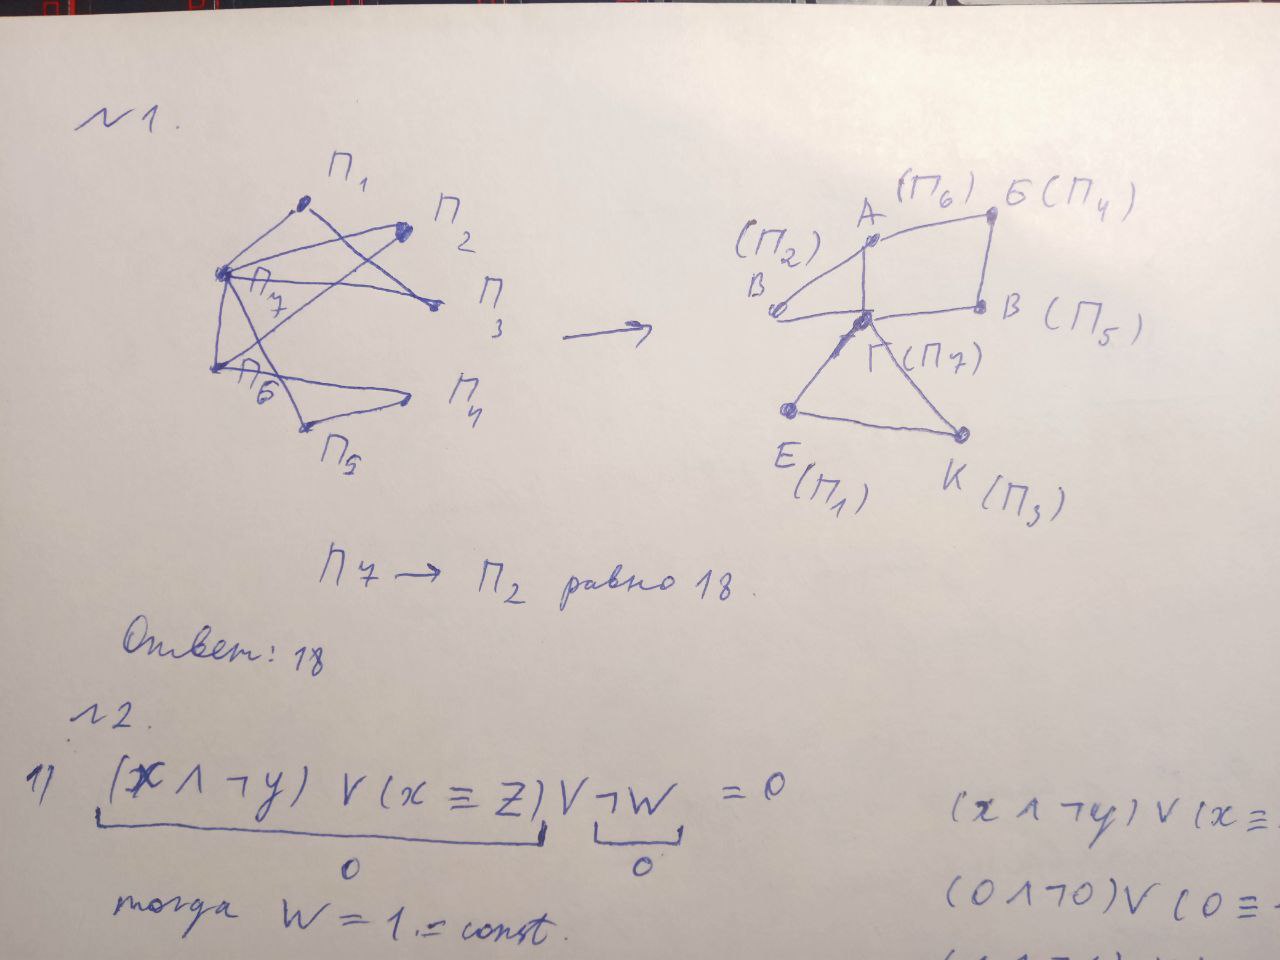 N 1.
П1
П2
П7
П3
П6
П4
П5
(П6)
А
Б (П4)
(П2)
В
В (П5)
Г (П7)
Е
(П1)
К (П3)
П7 → П2 равно 18.
Ответ: 18
N2.
1) (x ∧ ¬y) ∨ (x ≡ z) ∨ ¬w = 0
0
0
тогда W = 1 = const.
(x ∧ ¬y) ∨ (x ≡
(0 ∧ ¬0) ∨ (0 ≡